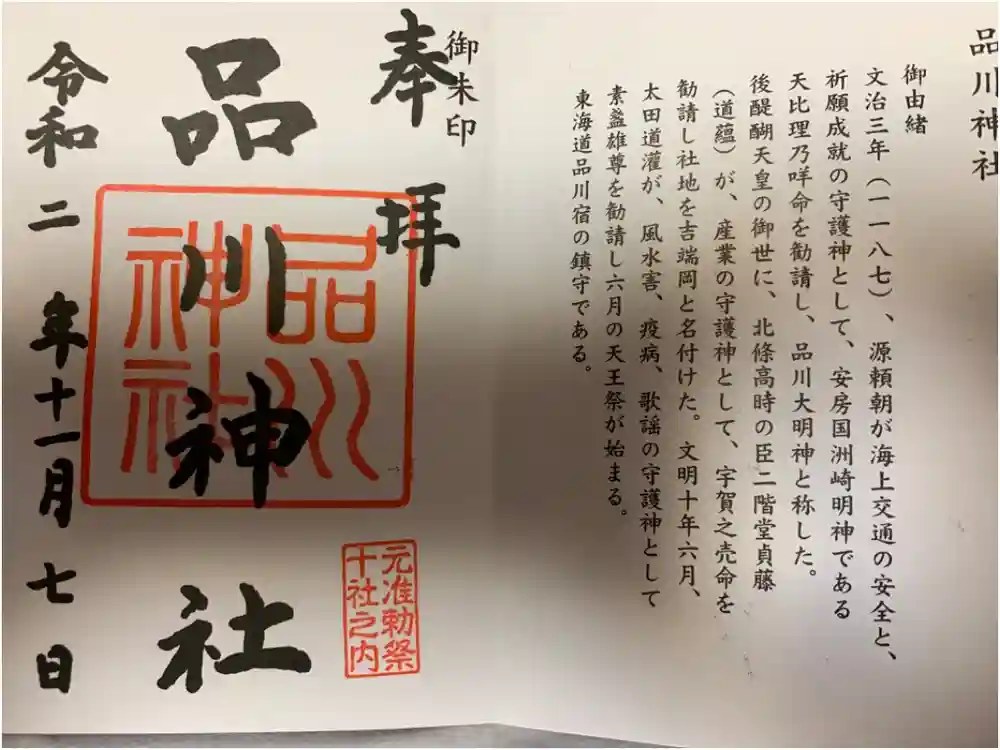 品川神社
御由緒
文治三年（一一八七）、源頼朝が海上交通の安全と、
祈願成就の守護神として、安房国洲崎明神である
天比理乃咩命を勧請し、品川大明神と称した。
後醍醐天皇の御世に、北條高時の臣二階堂貞藤
（道蘊）が、産業の守護神として、宇賀之売命を
勧請し社地を吉端岡と名付けた。文明十年六月、
太田道灌が、風水害、疫病、歌謡の守護神として
素盞雄尊を勧請し六月の天王祭が始まる。
東海道品川宿の鎮守である。
御朱印
奉拝
元准勅祭
十社之内
品川神社
品川
神社
令和二年十一月七日